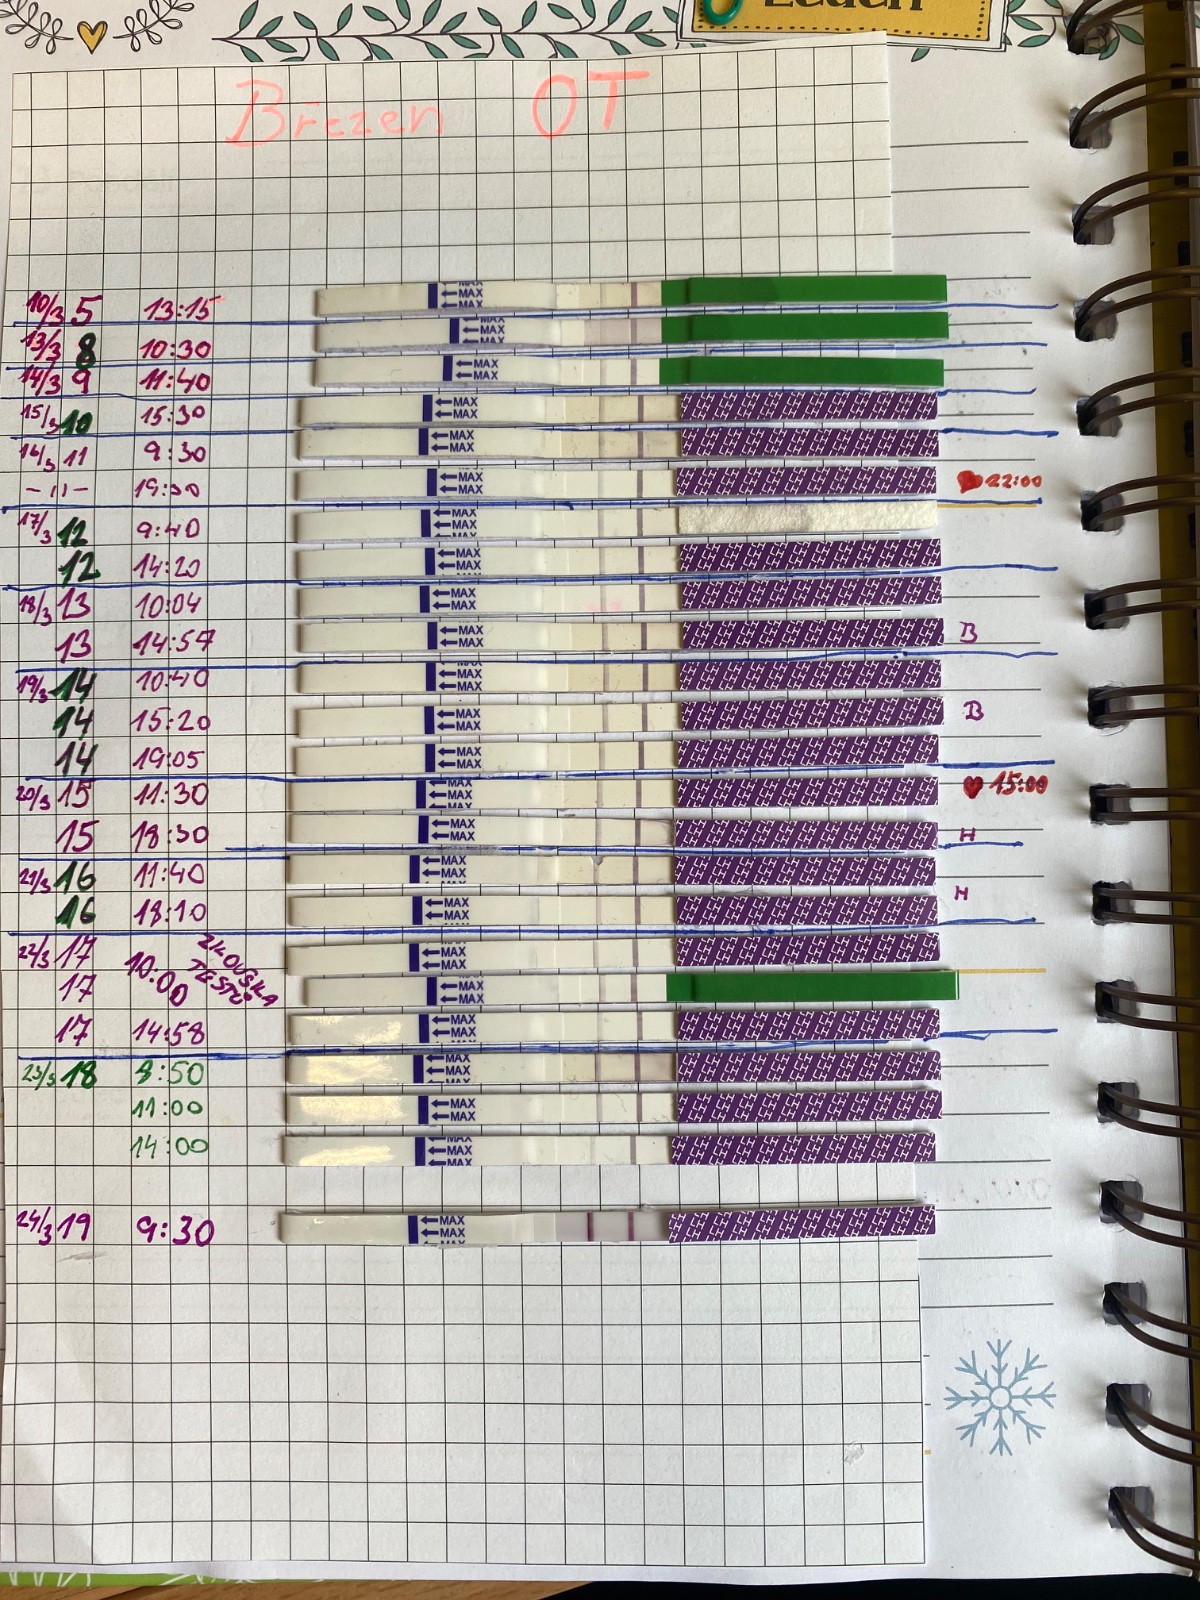 Leden
Březen OT
10/3 5 13:15 MAX MAX
13/3 8 10:30 MAX MAX MAX
14/3 9 11:40 MAX MAX
15/3 10 15:30 MAX MAX
16/3 11 9:30 MAX MAX
-11- 19:30 MAX MAX 22:00
17/3 12 9:40 MAX MAX MAX
12 14:20 MAX MAX MAX
18/3 13 10:04 MAX MAX
13 14:57 MAX MAX B
19/3 14 10:40 MAX MAX MAX
14 15:20 MAX MAX B
14 19:05 MAX MAX
20/3 15 11:30 MAX MAX MAX 15:00
15 18:30 MAX MAX H
21/3 16 11:40 MAX MAX MAX
16 18:10 MAX MAX H
22/3 17 10:00 ZKOUŠKA TESTU MAX MAX
17 MAX MAX MAX
17 14:58 MAX MAX
23/3 18 8:50 MAX MAX MAX
11:00 MAX MAX
14:00 MAX MAX MAX
24/3 19 9:30 MAX MAX MAX